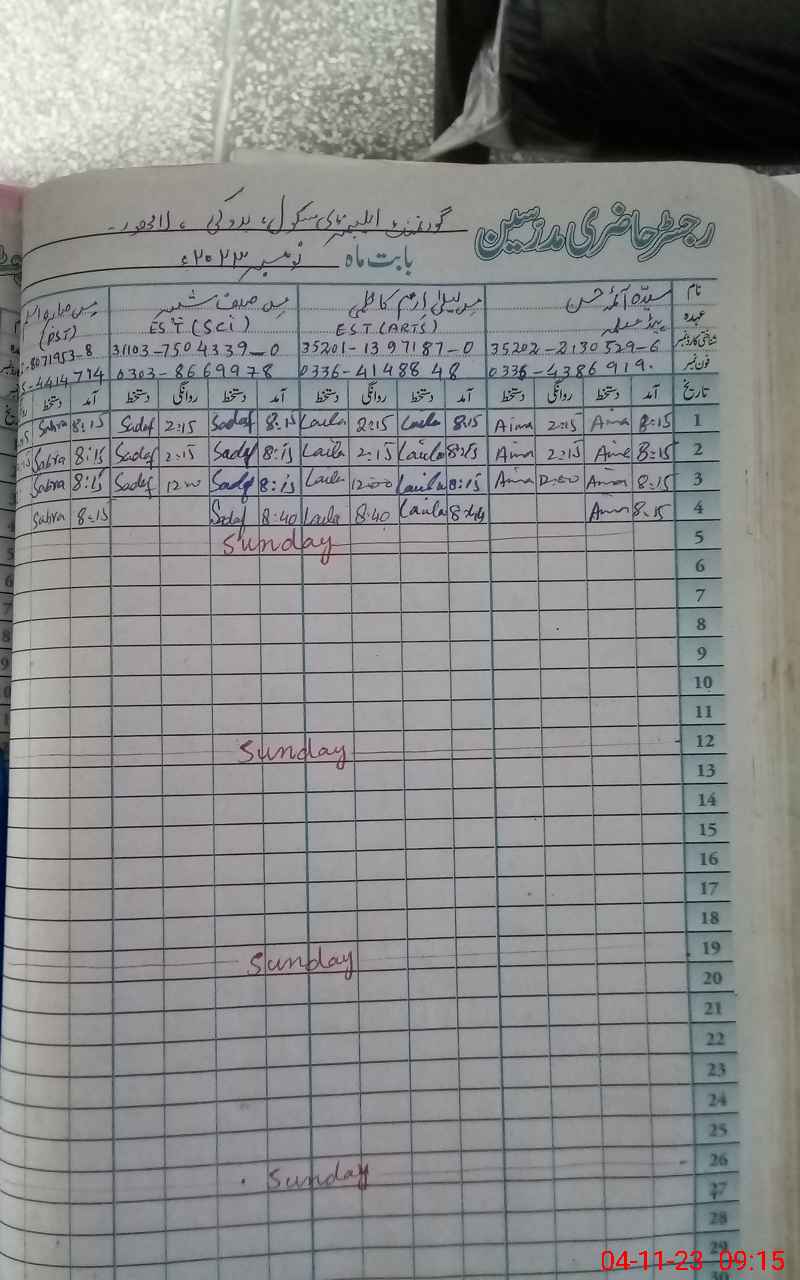 رجسٹر حاضری مدرسین گورنمنٹ ایلیمنٹری سکول، بدوکی، لاہور۔
بابت ماہ نومبر ۲۰۲۳ء
نام سیدہ آئمہ حسن مس لیلیٰ ارم کاظمی مس صدف مس صابرہ
عہدہ ہیڈ معلمہ EST (ARTS) EST (Sci) (PST)
شناختی کارڈ نمبر 35202-2130529-6 35201-1397187-0 31103-7504339-0 -8071953-8
فون نمبر 0336-4386919. 0336-4148848 0303-8669978 -4414714
تاریخ آمد دستخط روانگی دستخط آمد دستخط روانگی دستخط آمد دستخط روانگی دستخط آمد دستخط
1 8:15 Aima 2:15 Aima 8:15 Laila 2:15 Laila 8:15 Sadaf 2:15 Sadaf 8:15 Sabra
2 8:15 Aima 2:15 Aima 8:15 Laila 2:15 Laila 8:15 Sadaf 2:15 Sadaf 8:15 Sabra
3 8:15 Aima 12:00 Aima 8:15 Laila 12:00 Laila 8:15 Sadaf 12:00 Sadaf 8:15 Sabra
4 8:15 Aima Laila 8:40 Laila 8:40 Sadaf 8:15 Sabra
5 Sunday
6
7
8
9
10
11
12 Sunday
13
14
15
16
17
18
19 Sunday
20
21
22
23
24
25
26 Sunday
27
28
29
30
04-11-23 09:15